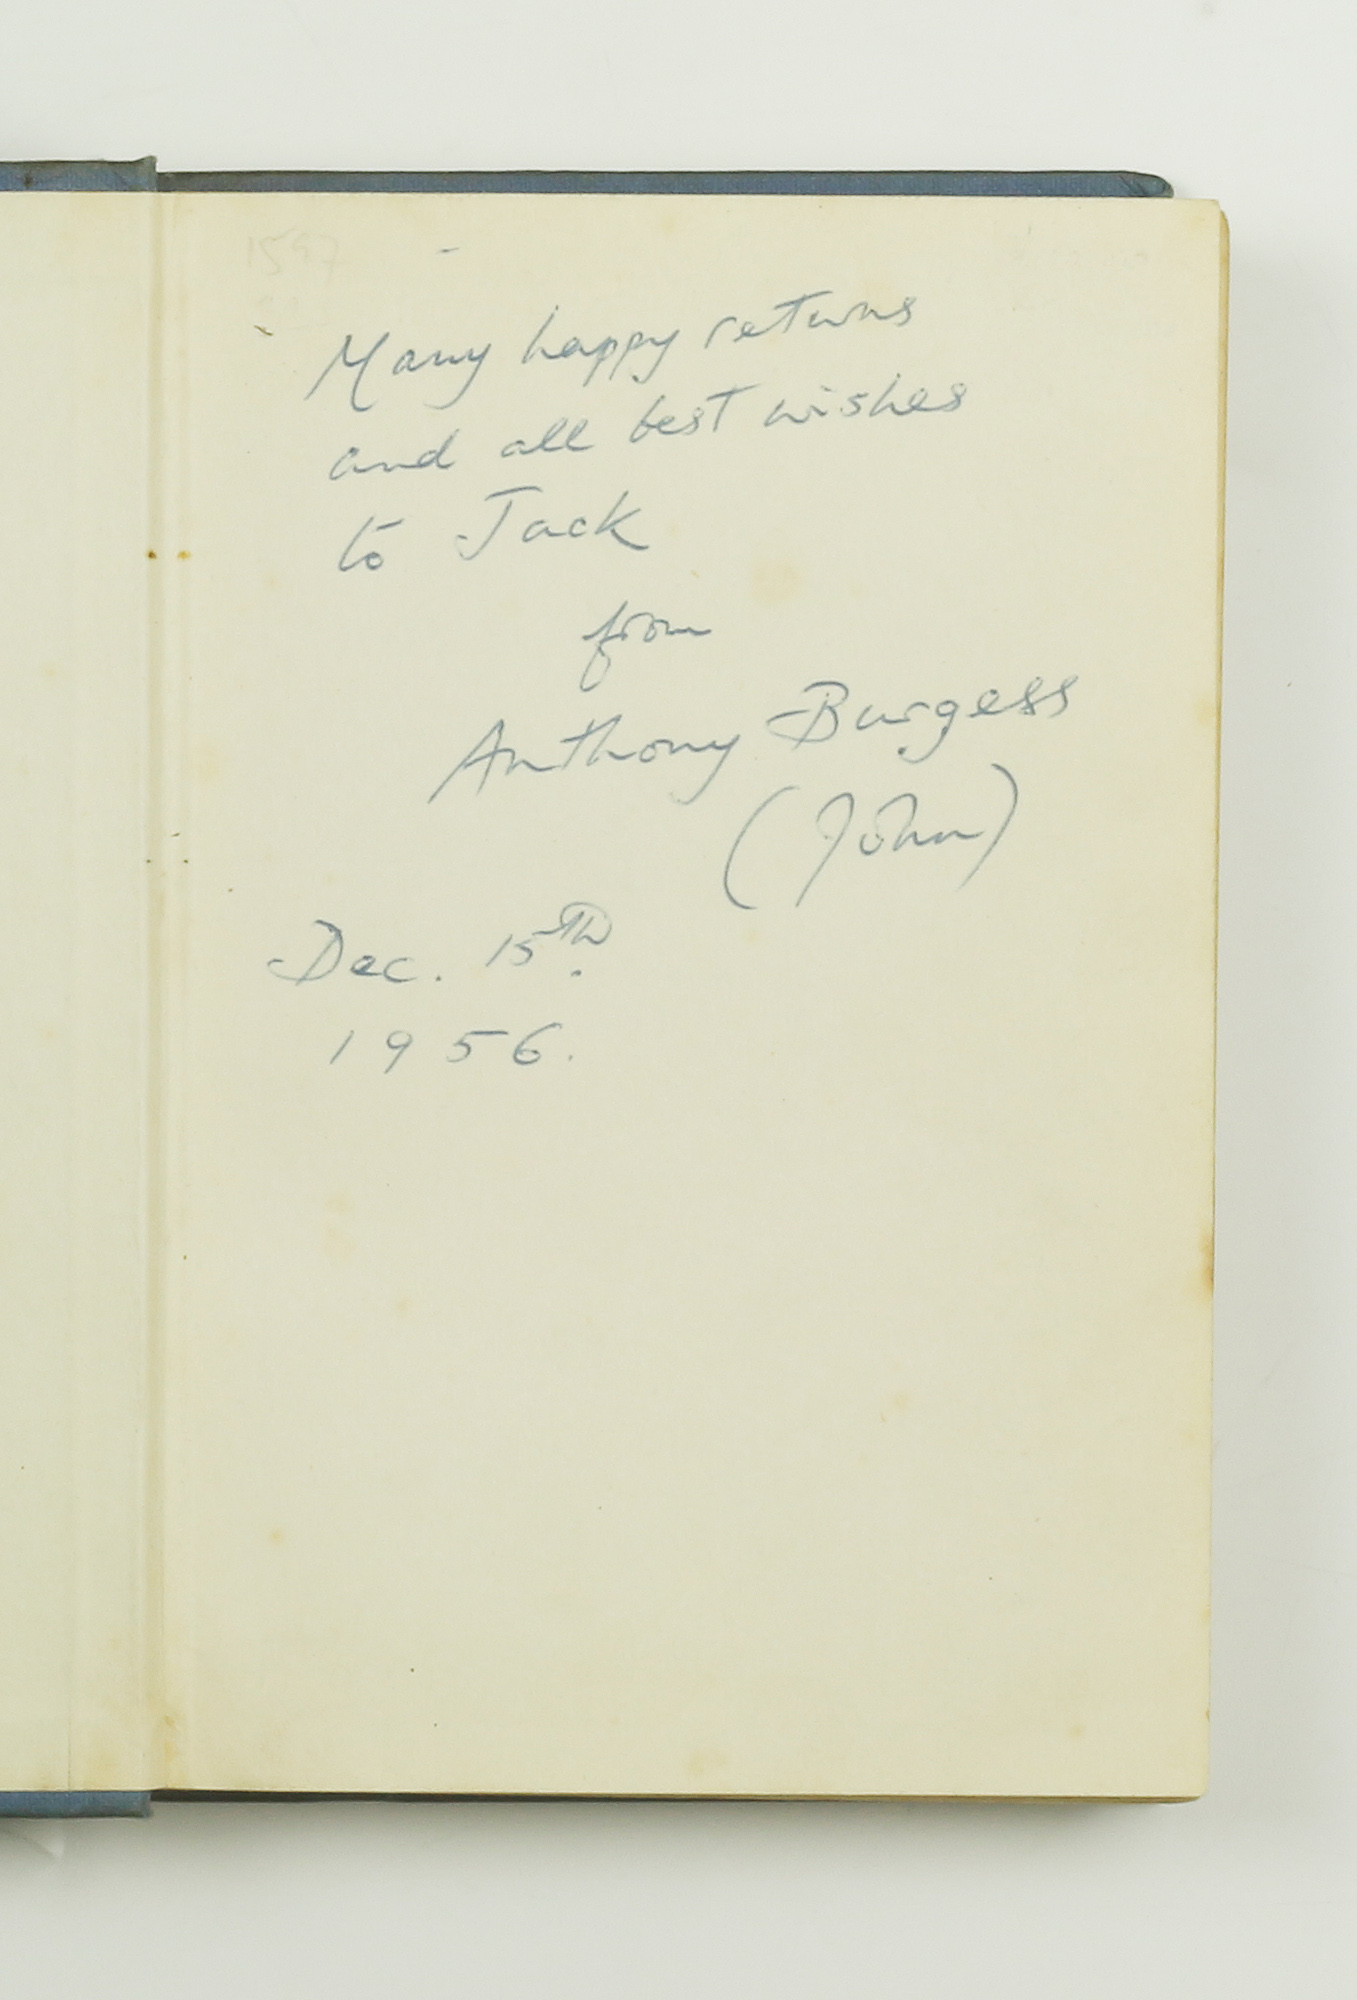 1597
Many happy returns
and all best wishes
to Jack
from
Anthony Burgess
(John)
Dec. 15th.
1956.